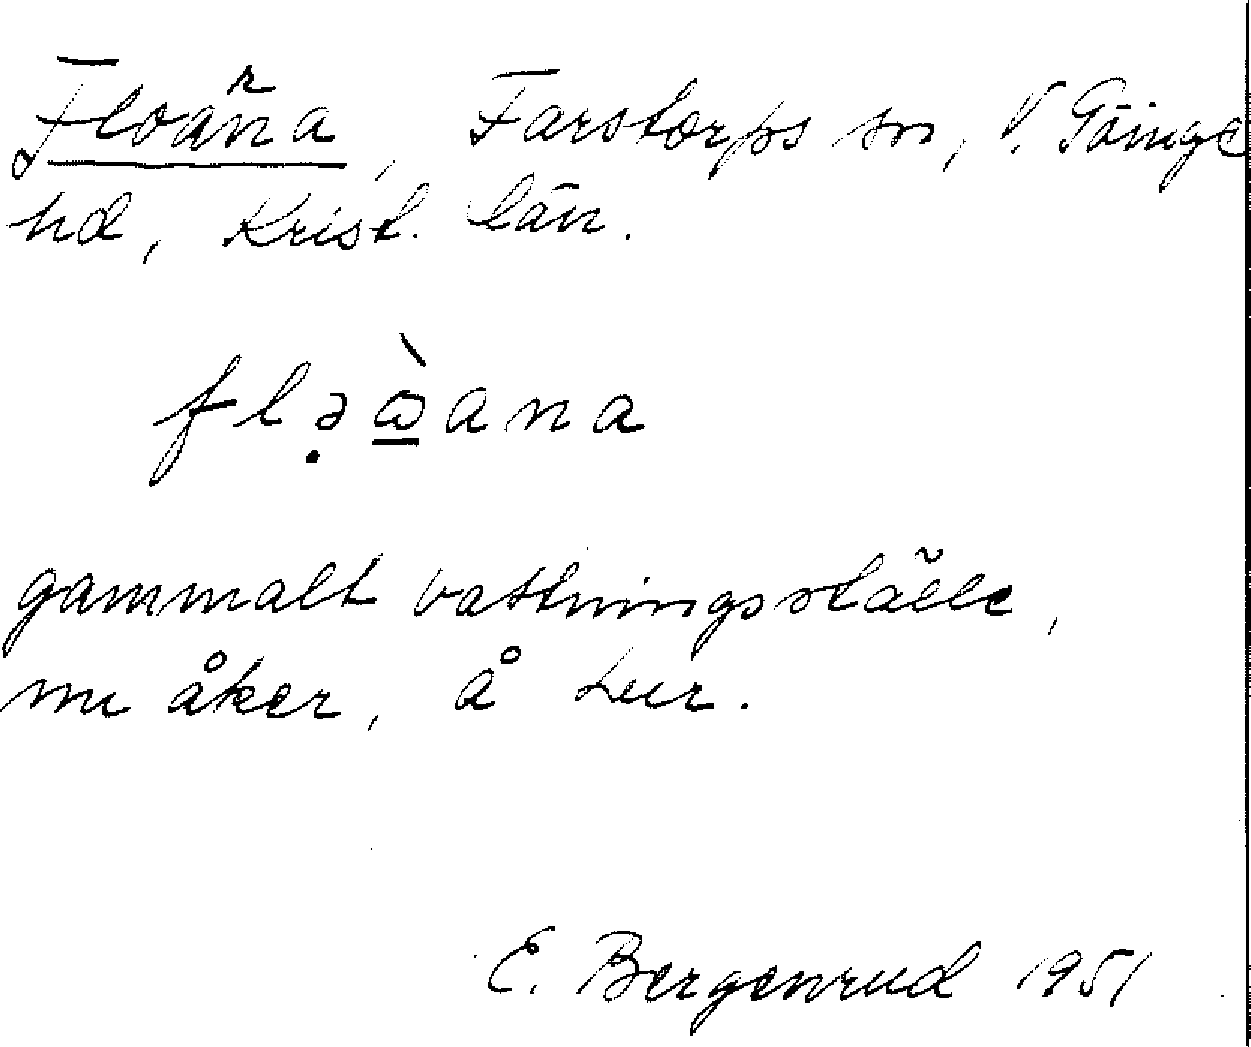 Floarna, Farstorps sn, V. Göinge
hd, Krist. län.
flə̣ὼ̲ana
gammalt vattningsställe,
nu åker, å Lur.
E. Bergenrud 1951